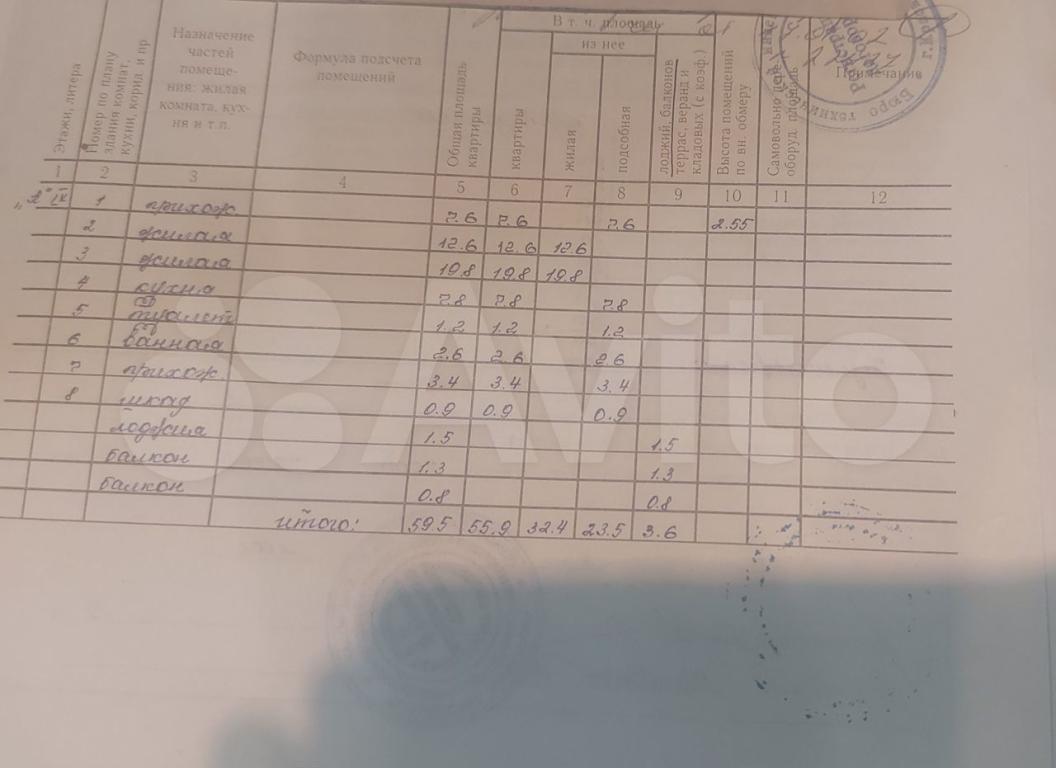 В т. ч. площадь
из нее
Этажи, литера
Номер по плану здания комнат, кухни, корид. и пр
Назначение
частей
помеще-
ния: жилая
комната, кух-
ня и т.п.
Формула подсчета
помещений
Общая площадь
квартиры
квартиры
жилая
подсобная
лоджий, балконов
террас, веранд и
кладовых (с коэф.)
Высота помещений
по вн. обмеру
Самовольно пере-
оборуд. площадь
Примечание
Бюро техни
1 2 3 4 5 6 7 8 9 10 11 12
1 прихож. 7.6 7.6 7.6 2.55
2 жилая 12.6 12.6 12.6
3 жилая 19.8 19.8 19.8
4 кухня 7.8 7.8 7.8
5 туалет 1.2 1.2 1.2
6 ванная 2.6 2.6 2.6
7 прихож. 3.4 3.4 3.4
8 шкаф 0.9 0.9 0.9
лоджия 1.5 1.5
балкон 1.3 1.3
балкон 0.8 0.8
итого: 59.5 55.9 32.4 23.5 3.6
Avito